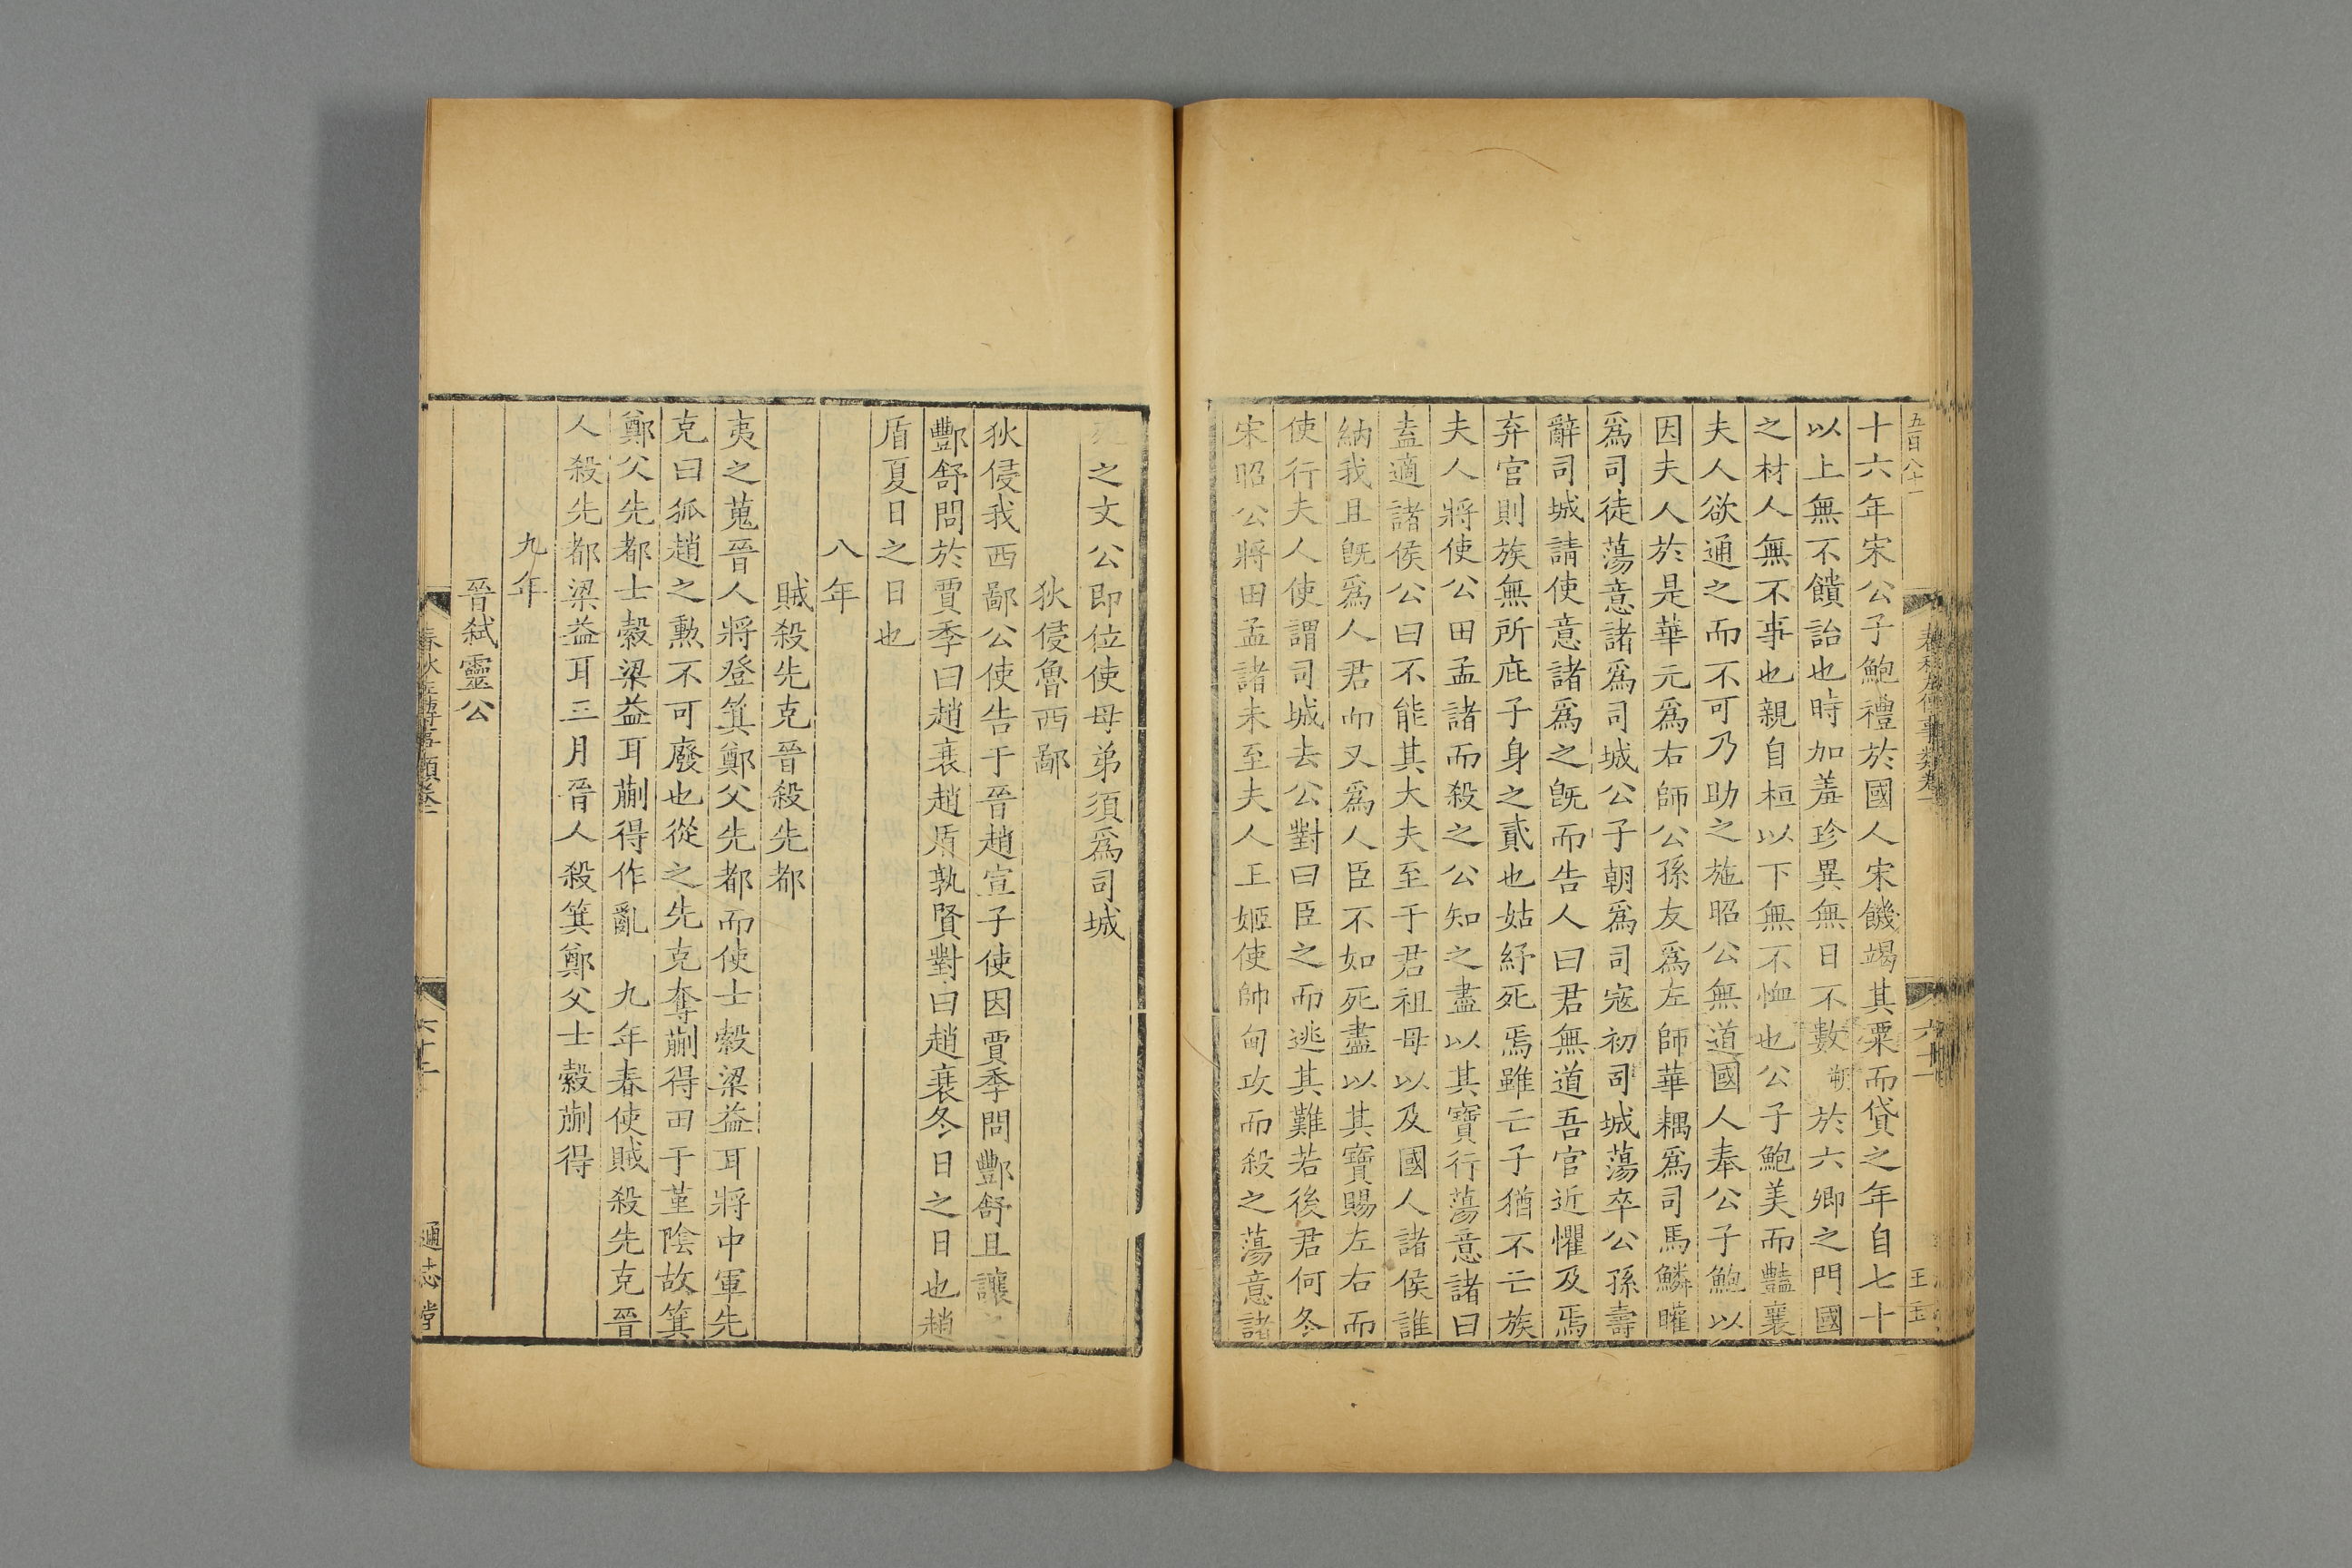 五百八十一
十六年宋公子鮑禮於國人宋饑竭其粟而貸之年自七十
以上無不饋詒也時加羞珍異無日不數朔於六卿之門國
之材人無不事也親自桓以下無不恤也公子鮑美而豔襄
夫人欲通之而不可乃助之施昭公無道國人奉公子鮑以
因夫人於是華元爲右師公孫友爲左師華耦爲司馬鱗矔
爲司徒蕩意諸爲司城公子朝爲司寇初司城蕩卒公孫壽
辭司城請使意諸爲之旣而告人曰君無道吾官近懼及焉
弃官則族無所庇子身之貳也姑紓死焉雖亡子猶不亡族
夫人將使公田孟諸而殺之公知之盡以其寶行蕩意諸曰
盍適諸侯公曰不能其大夫至于君祖母以及國人諸侯誰
納我且旣爲人君而又爲人臣不如死盡以其寶賜左右而
使行夫人使謂司城去公對曰臣之而逃其難若後君何冬
宋昭公將田孟諸未至夫人王姬使帥甸攻而殺之蕩意諸
春秋左傳事類卷一 六十一 王玉
死之文公即位使母弟須爲司城
狄侵魯西鄙
狄侵我西鄙公使告于晉趙宣子使因賈季問酆舒且讓之
酆舒問於賈季曰趙衰趙盾孰賢對曰趙衰冬日之日也趙
盾夏日之日也
八年
賊殺先克晉殺先都
夷之蒐晉人將登箕鄭父先都而使士縠梁益耳將中軍先
克曰狐趙之勲不可廢也從之先克奪蒯得田于堇陰故箕
鄭父先都士縠梁益耳蒯得作亂 九年春使賊殺先克晉
人殺先都梁益耳三月晉人殺箕鄭父士縠蒯得
九年
晉弑靈公
春秋左傳事類卷一 六十二 通志堂